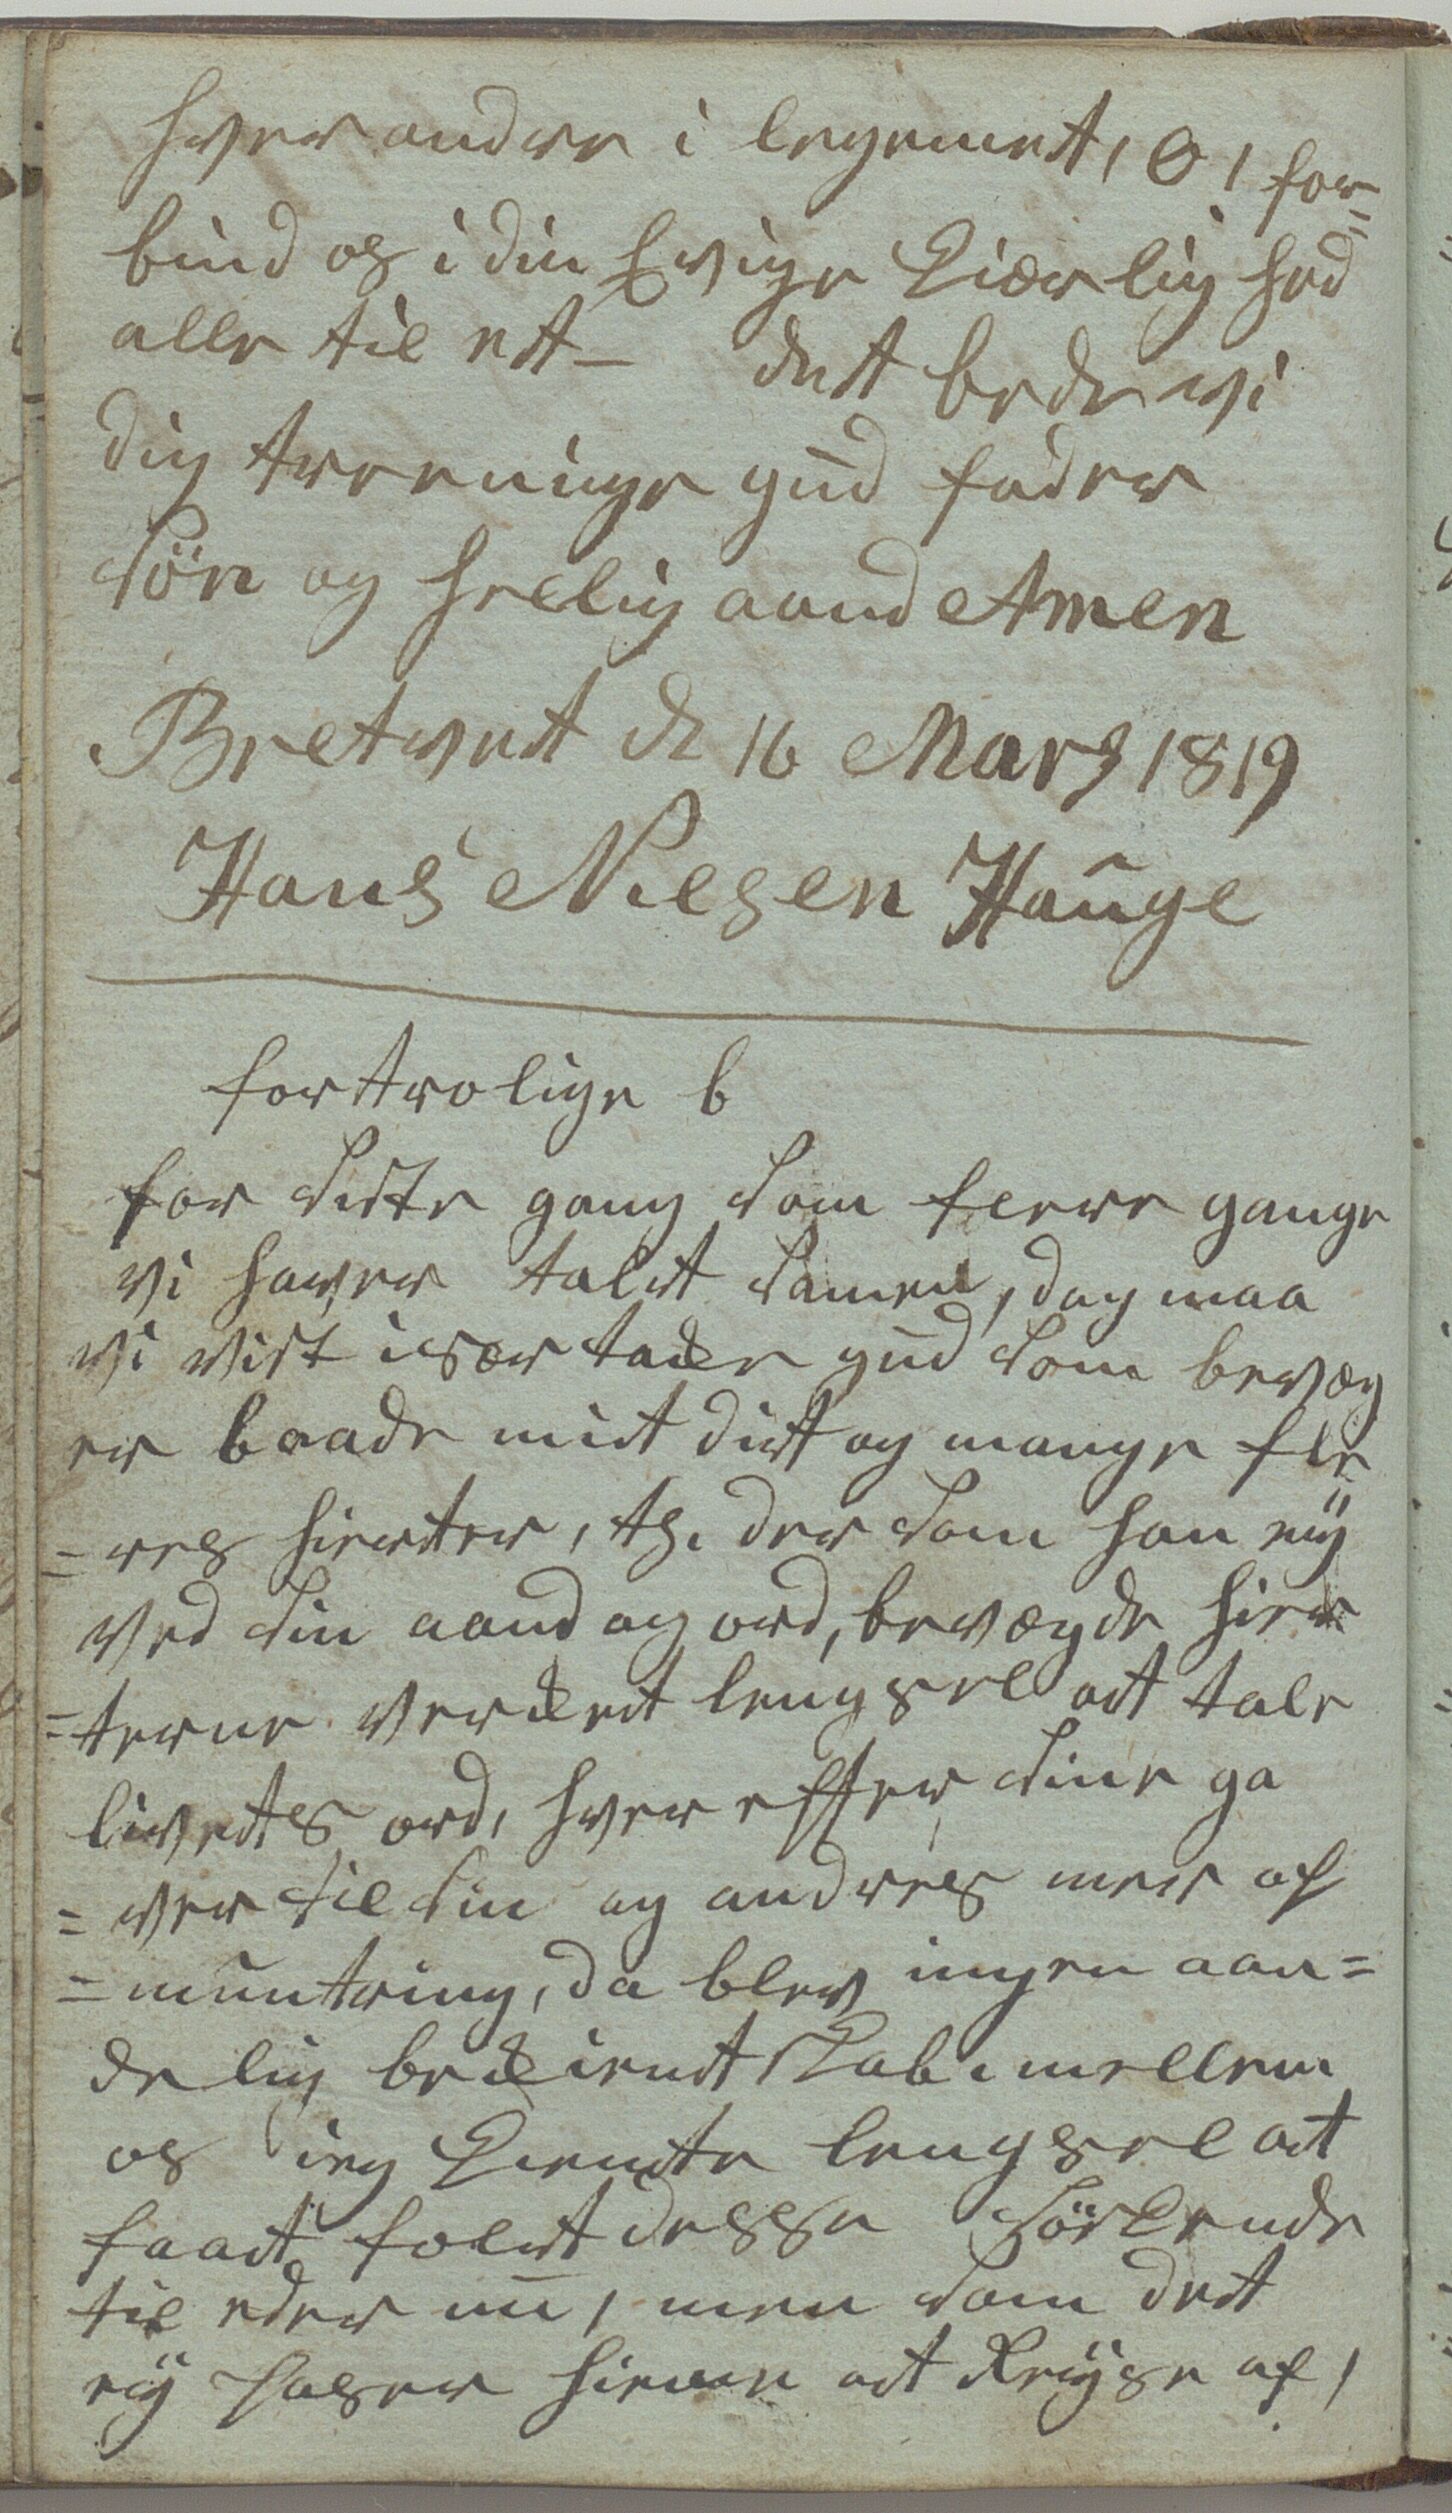 hverandre i legemet, O! for=
bind os i din Evige Kiærlighed
alle til et — det bede vi
dig treenige gud fader
Sön og hellig aand Amen
Bretvet d 16 Marz 1819
Hans Nielsen Hauge
fortrolige b
for siste gang som flere gange
vi haver talet samen, dog maa
vi vist især takke gud som bevæg
er baade mit dit og mange fle
=res hierter, th. der som han eÿ
ved sin aand og ord, bevægde hier
=terne verket lengsel at tale
livets ord, hver effter sine ga
=ver til sin og andres mer op
=muntring, da blev ingen aan=
delig bekiendtskab imellem
os ieg kiendte lengsel at
faat folt desse
til eder nu, men som det
eÿ passer hierne at Reÿse af,